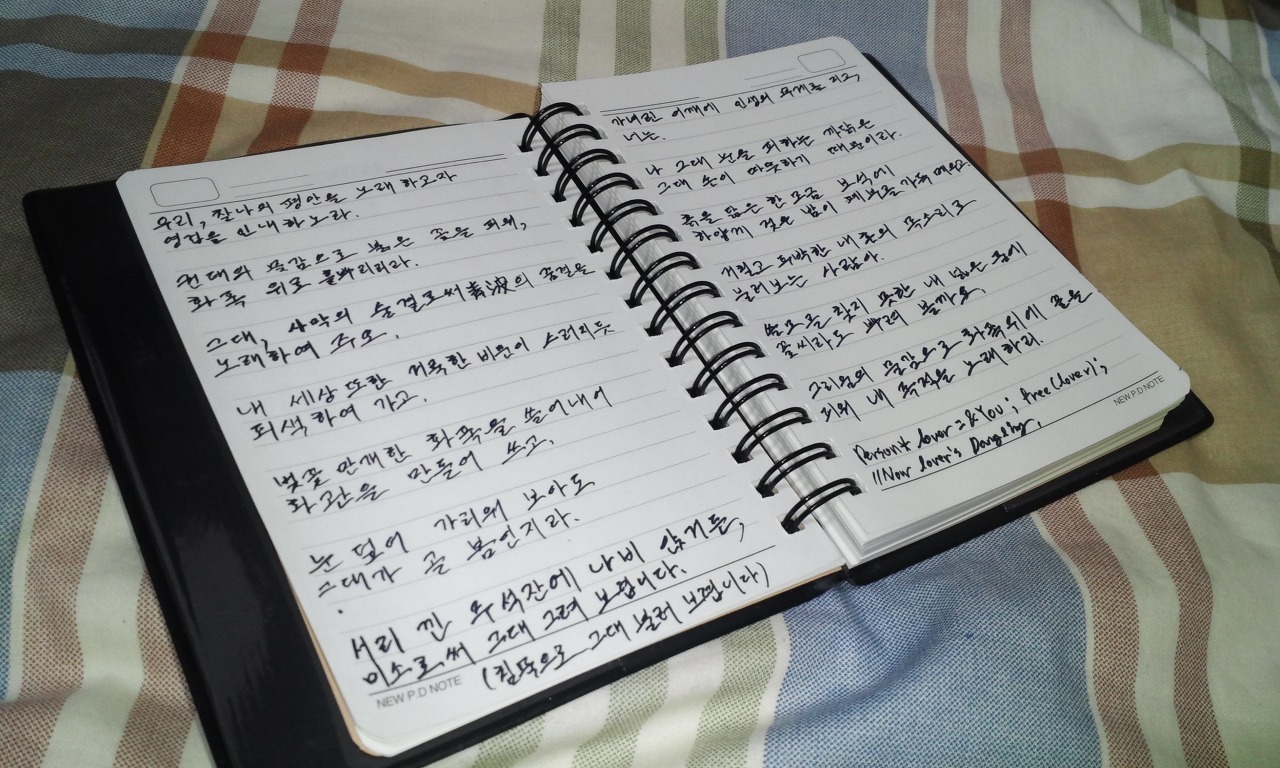 우리, 찰나의 평안을 노래 하고자
영감을 인내하노라.
권태의 물감으로 붉은 꽃을 피워,
화폭 위로 흩뿌리리라.
그대, 사악의 숨결로써 靑波의 곰결을
노래하여 주오.
내 세상 또한 거룩한 비문이 스러지듯
퇴색하여 가고.
벚꽃 만개한 화폭을 쓸어내어
화관을 만들어 쓰고.
눈 덮어 가리워 보아도
그대가 곧 봄인지라.
서리 낀 유석잔에 나비 앉거든,
미소로써 그대 그려 보렵니다.
(침묵으로 그대 불러 보렵니다)
NEW P.D NOTE
가녀린 어깨에 인생의 무게를 지고,
너는.
나 그대 눈을 피하는 까닭은
그대 손이 따뜻하기 때문이라.
흙을 닮은 한 모금 보석에
하얗게 젖은 밤이 폐부를 가득 메우고.
거칠고 퇴색한 내 혼의 목소리로
불러보는 사람아.
쓸모을 찾지 못한 내 넓은 등에
꽃씨라도 뿌려 볼까요.
그리움의 물감으로 화폭위에 꽃을
피워 내 족적을 노래하리.
Person* lover = &You; free(lover);
//Now lover's Dangling.
NEW P.D NOTE